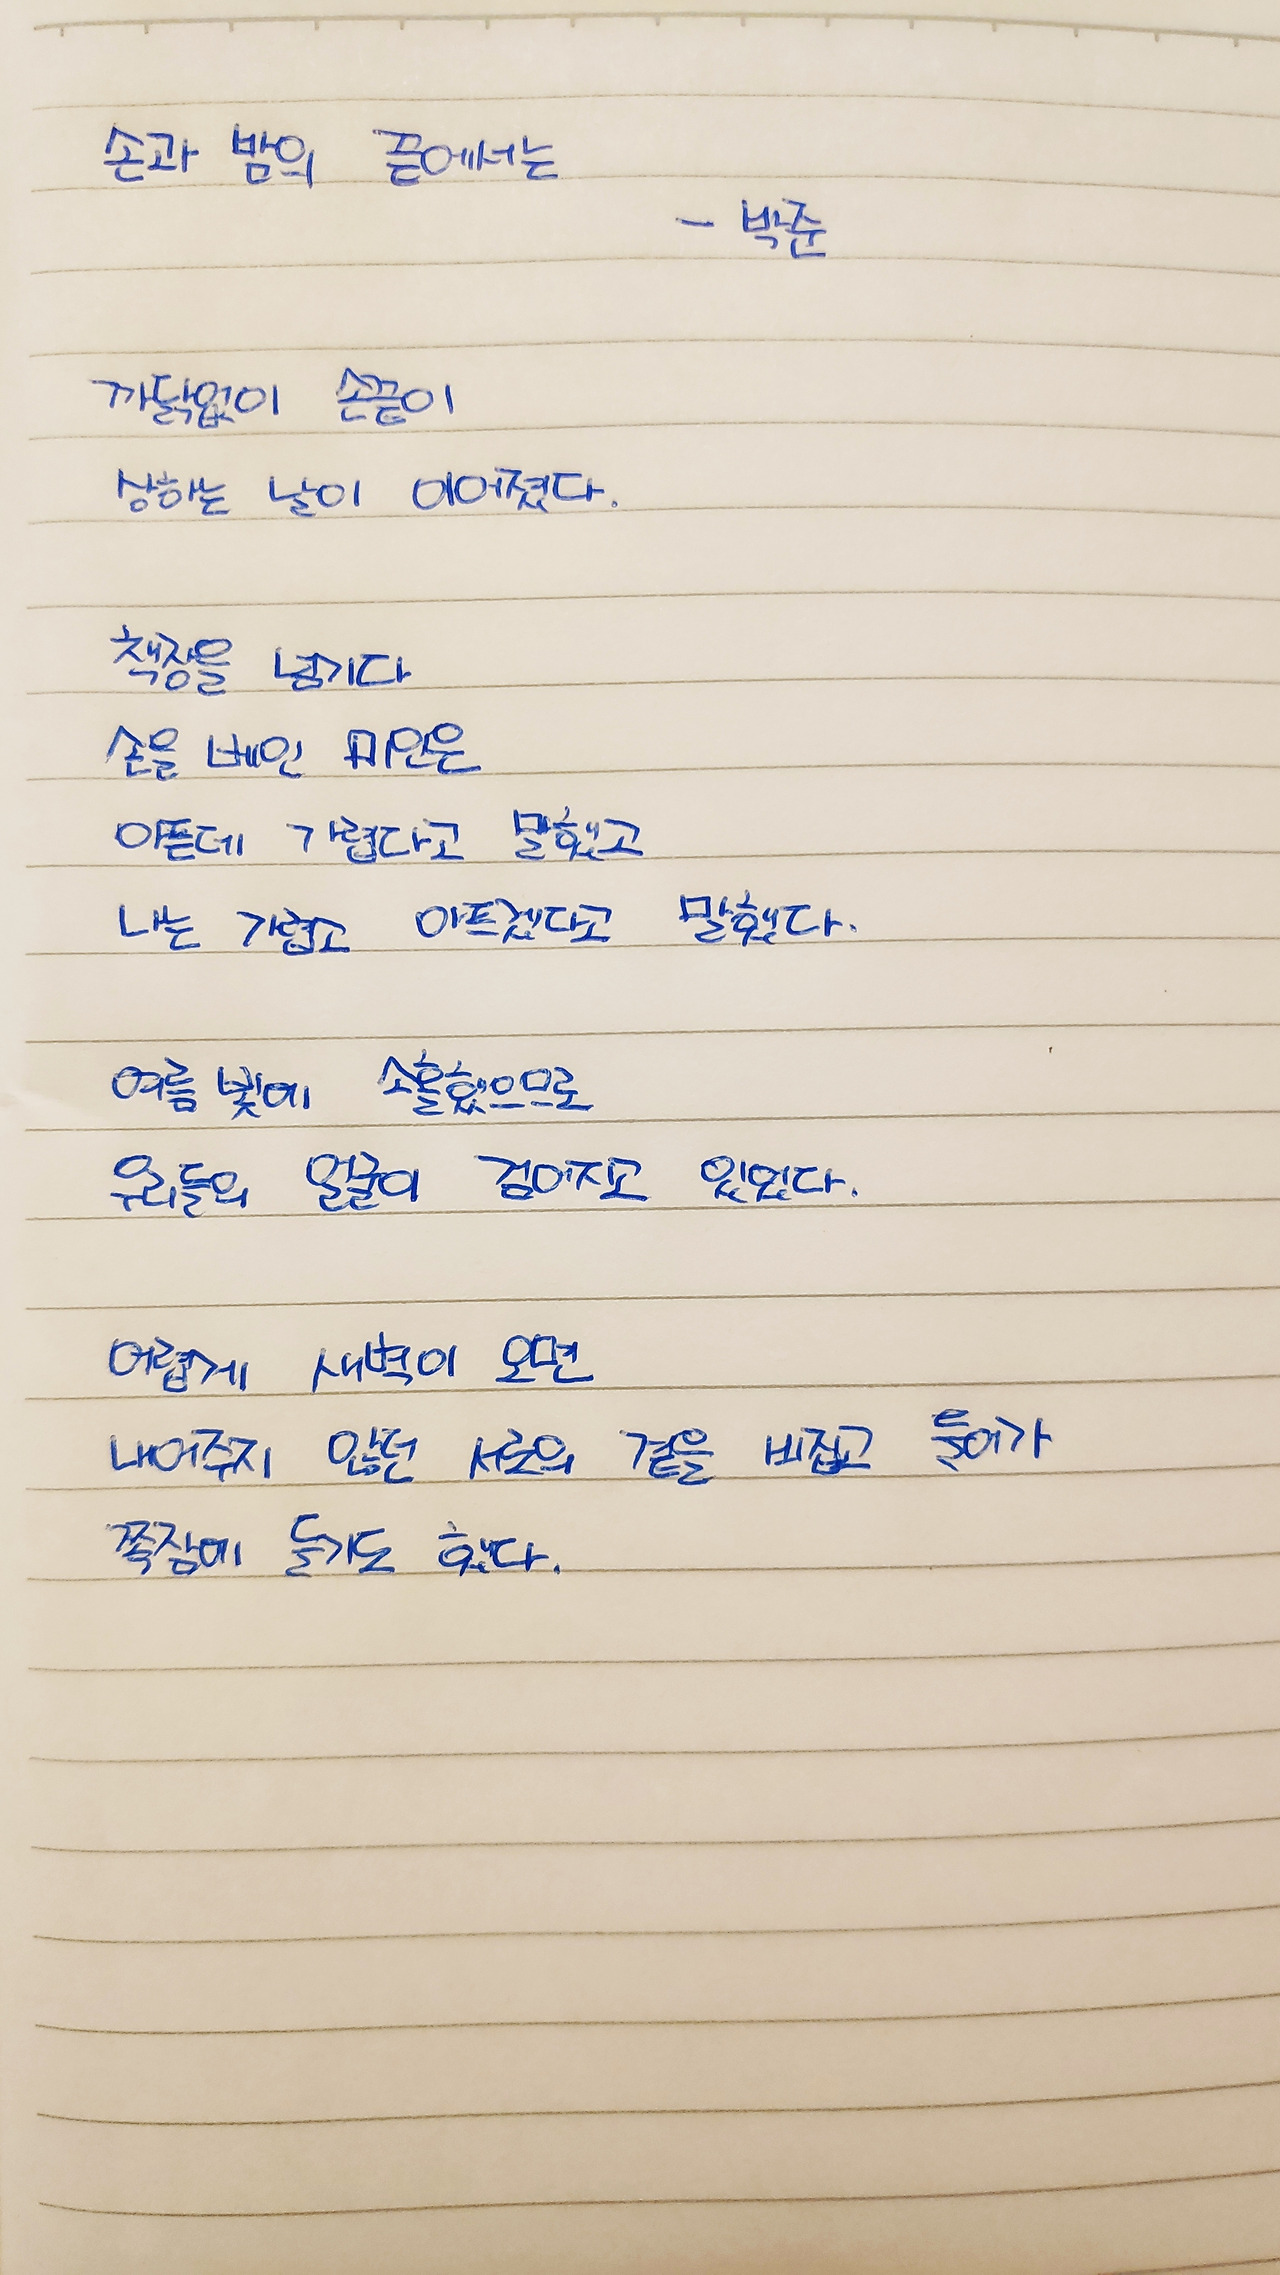 손과 밤의 끝에서는
- 박준
까닭없이 손끝이
상하는 날이 이어졌다.
책장을 넘기다
손을 베인 미인은
아픈데 가렵다고 말했고
나는 가렵고 아프겠다고 말했다.
여름 빛에 소홀했으므로
우리들의 얼굴이 검어지고 있었다.
어렵게 새벽이 오면
내어주지 않던 서로의 곁을 비집고 들어가
쪽잠에 들기도 했다.